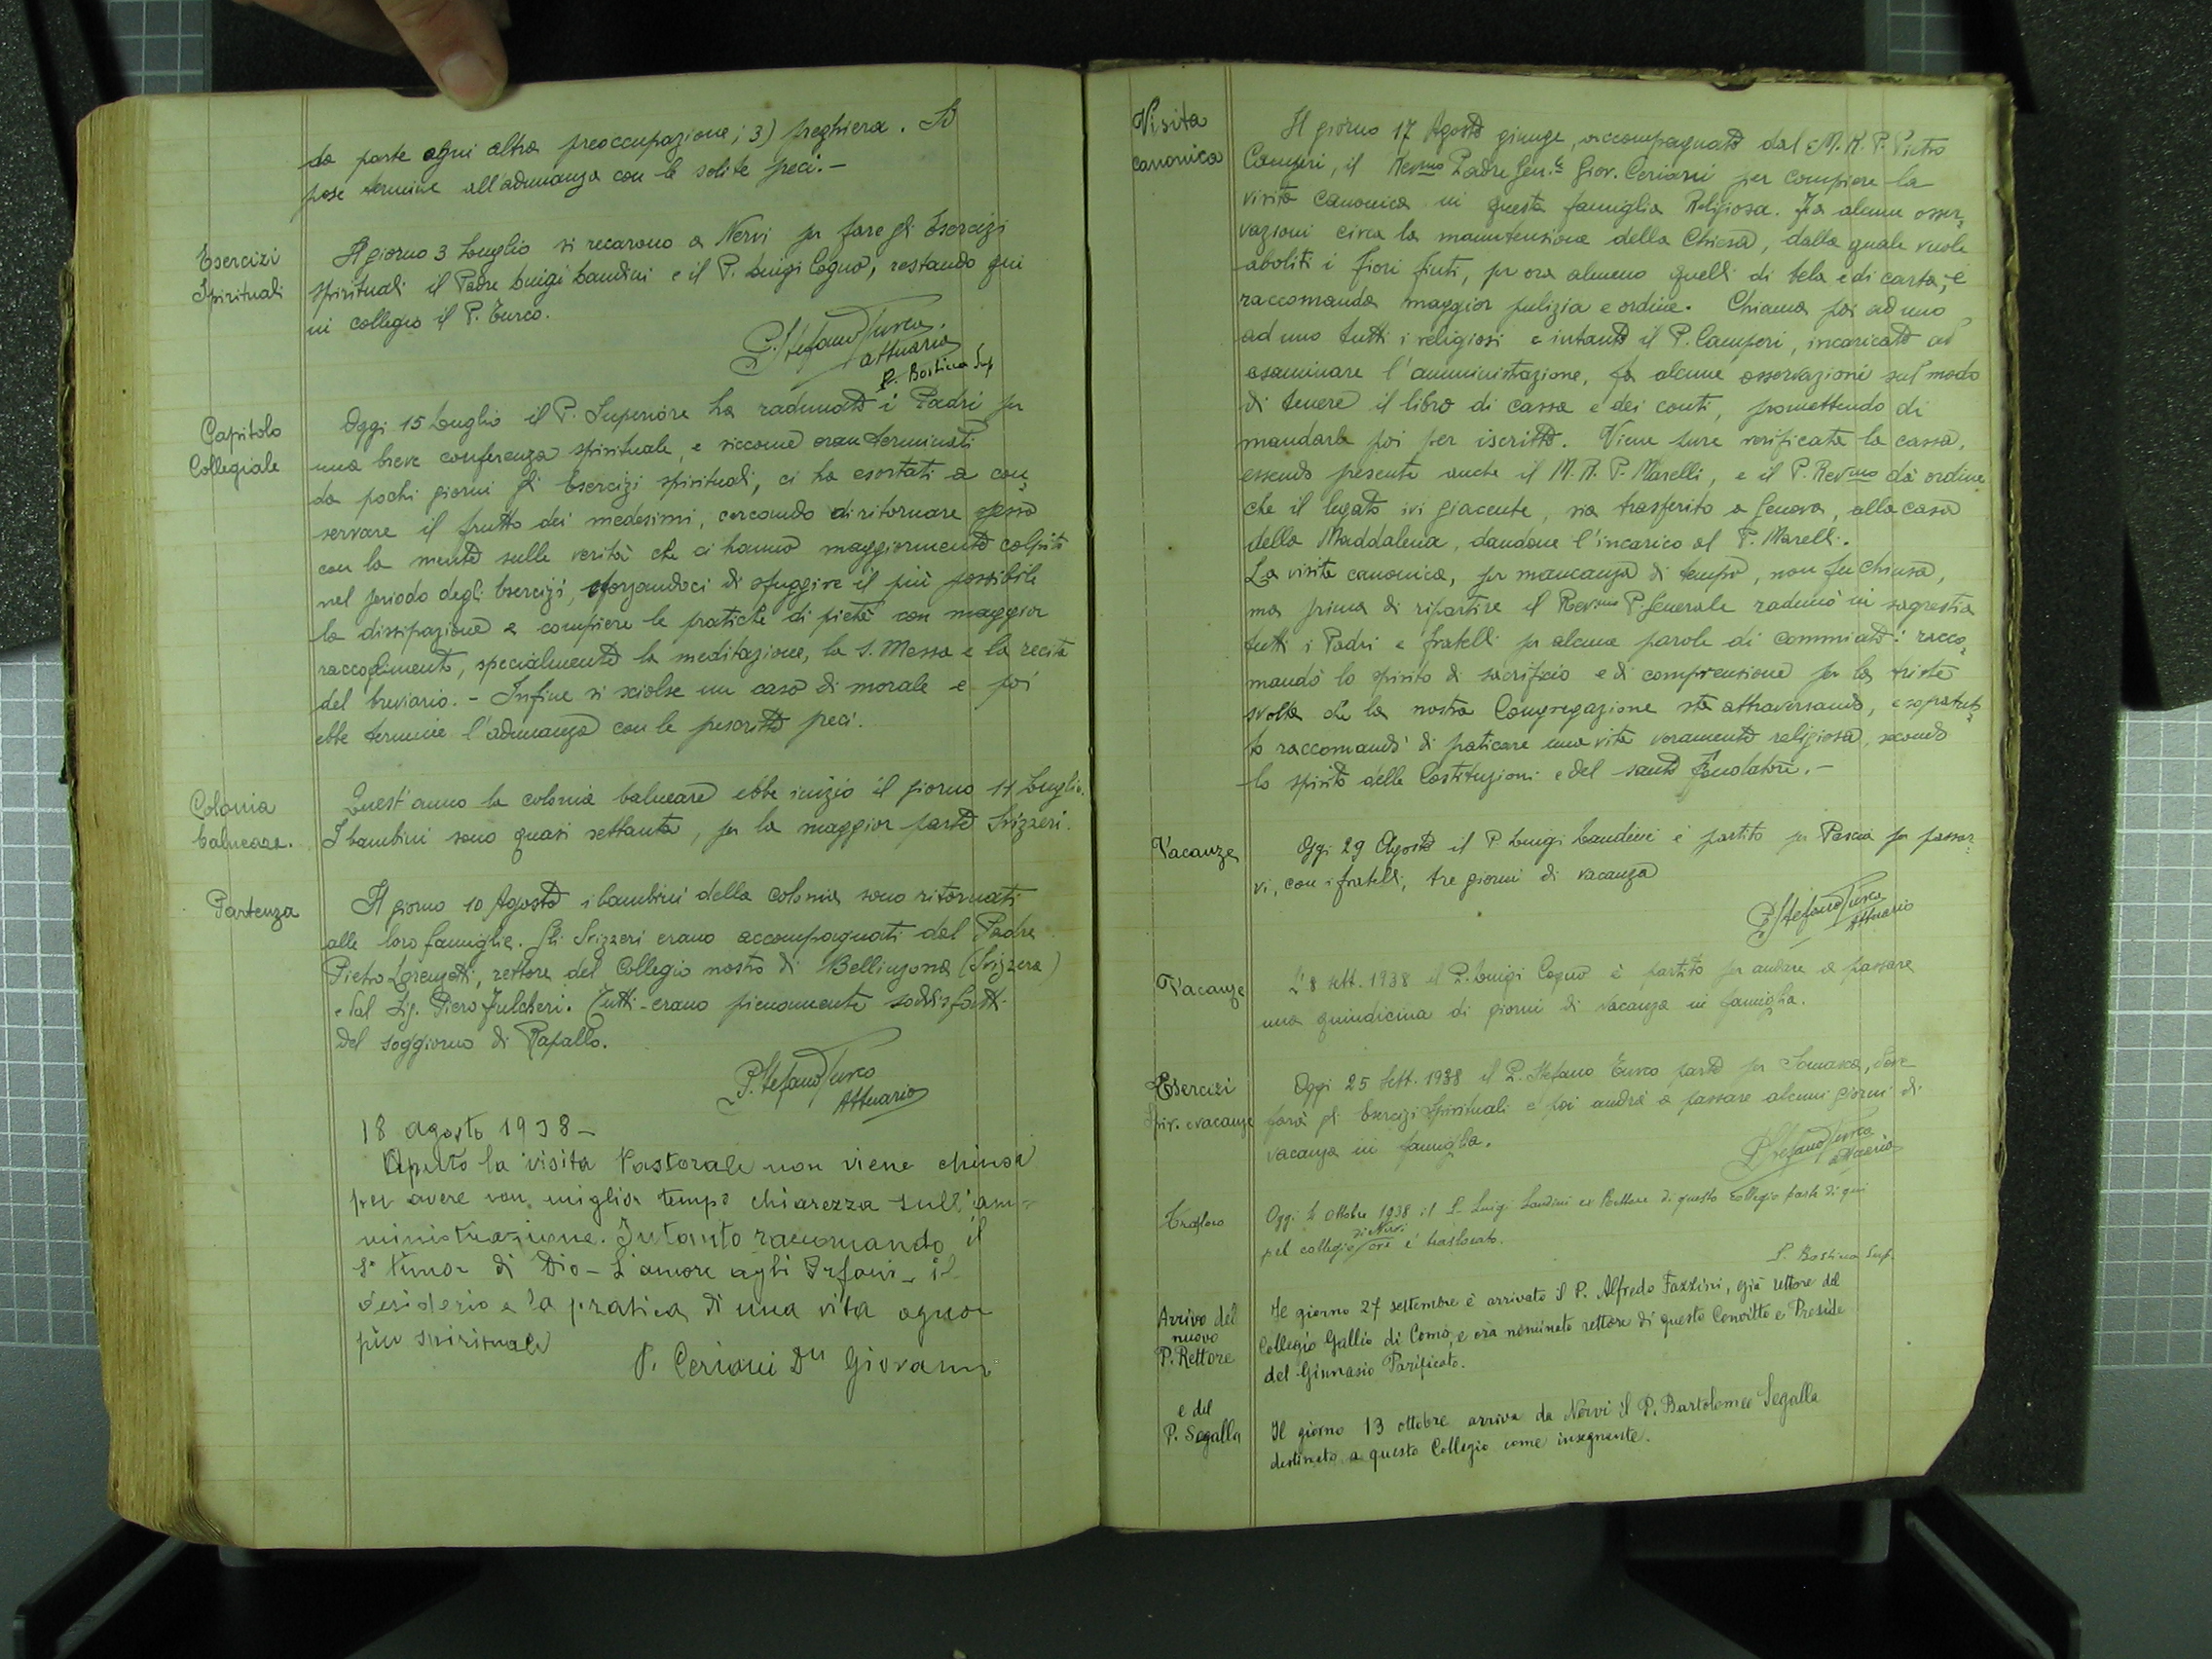 da parte ogni altra preoccupazione; 3) preghiera. Si
pose termine all'adunanza con le solite preci.-
Esercizi
Spirituali
Il giorno 3 Luglio si recarono a Nervi per fare gli Esercizi
spirituali il Padre Luigi Landini e il P. Luigi Cogno, restando qui
in collegio il P. Turco.
P. Stefano Turco
attuario
P. Bortina Sup
Capitolo
Collegiale
Oggi 15 Luglio il P. Superiore ha radunato i Padri per
una breve conferenza spirituale, e siccome eran terminati
da pochi giorni gli Esercizi spirituali, ci ha esortati a con-
servare il frutto dei medesimi, cercando di ritornare spesso
con la mente sulle verità che ci hanno maggiormente colpiti
nel periodo degli Esercizi, sforzandoci di sfuggire il più possibile
la dissipazione e compiere le pratiche di pietà con maggior
raccoglimento, specialmente la meditazione, la S. Messa e la recita
del breviario. - Infine si sciolse un caso di morale e poi
ebbe termine l'adunanza con le prescritte preci.
Colonia
balneare.
Quest'anno la colonia balneare ebbe inizio il giorno 11 Luglio.
I bambini sono quasi settanta, per la maggior parte Svizzeri.
Partenza
Il giorno 10 Agosto i bambini della colonia sono ritornati
alle loro famiglie. Gli Svizzeri erano accompagnati dal Padre
Pietro Lorenzetti, rettore del Collegio nostro di Bellinzona (Svizzera)
e dal Sig. Piero Fulcheri. Tutti erano pienamente soddisfatti
del soggiorno di Rapallo.
P. Stefano Turco
Attuario
18 agosto 1938 -
Aperto la visita Pastorale non viene chiusa
per avere con miglior tempo chiarezza sull'am-
ministrazione. Intanto raccomando il
S° timor di Dio - L'amore agli Orfani - il
desiderio e la pratica di una vita ognor
più spirituale
P. Ceriani Dn Giovanni
Visita
canonica
Il giorno 17 Agosto giunge, accompagnato dal M. R. P. Pietro
Camperi, il Rev.mo Padre Gen.le Giov. Ceriani per compiere la
visita canonica in questa famiglia Religiosa. Fa alcune osser-
vazioni circa la manutensione della Chiesa, dalla quale vuole
aboliti i fiori finti, per ora almeno quelli di tela e di carta, e
raccomanda maggior pulizia e ordine. Chiama poi ad uno
ad uno tutti i religiosi e intanto il P. Camperi, incaricato ad
esaminare l'amministazione, fa alcune osservazioni sul modo
di tenere il libro di cassa e dei conti, promettendo di
mandarle poi per iscritto. Viene pure verificata la cassa,
essendo presente anche il M. R. P. Marelli, e il P. Rev.mo dà ordine
che il legato ivi giacente, sia trasferito a Genova, alla casa
della Maddalena, dandone l'incarico al P. Marelli.
La visita canonica, per mancanza di tempo, non fu chiusa,
ma prima di ripartire il Rev.mo P. Generale radunò in sagrestia
tutti i Padri e fratelli per alcune parole di commiato: racco-
mandò lo spirito di sacrificio e di comprensione per la triste
svolta che la nostra Congregazione sta attraversando, e soprattut-
to raccomandò di praticare una vita veramente religiosa, secondo
lo spirito delle Costituzioni e del santo Fondatore.-
Vacanze
Oggi 29 Agosto il P. Luigi Landini è partito per Pescia per passar-
vi, con i fratelli, tre giorni di vacanza
P. Stefano Turco
Attuario
Vacanze
L'8 sett. 1938 il P. Luigi Cogno è partito per andare a passare
una quindicina di giorni di vacanza in famiglia.
Esercizi
Spir. e vacanze
Oggi 25 Sett. 1938 il P. Stefano Turco parte per Somasca, dove
farà gli Esercizi Spirituali e poi andrà a passare alcuni giorni di
vacanza in famiglia.
P. Stefano Turco
attuario
Trasloco
Oggi 2 Ottobre 1938 il P. Luigi Landini ex Rettore di questo Collegio parte di qui
pel collegio di Nervi ove è traslocato.
P. Bortina Sup.
Arrivo del
nuovo
P. Rettore
Il giorno 27 settembre è arrivato il P. Alfredo Fazzini, già rettore del
Collegio Gallio di Como, e ora nominato rettore di questo Convitto e Preside
del Ginnasio Parificato.
e del
P. Segalla
Il giorno 13 ottobre arriva da Nervi il P. Bartolomeo Segalla
destinato a questo Collegio come insegnante.